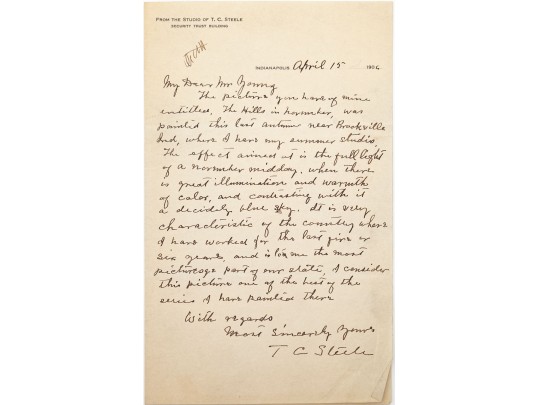 FROM THE STUDIO OF T. C. STEELE
SECURITY TRUST BUILDING
INDIANAPOLIS April 15 1906
My Dear Mr Young
The picture you have of mine
entitled, The Hills in November, was
painted this last autumn near Brookville
Ind, where I have my summer studio.
The effect aimed at is the full light
of a November midday, when there
is great illumination and warmth
of color, and contrasting with it
a decidedly blue sky. It is very
characteristic of the country where
I have worked for the last five or
six years, and is to me the most
picturesque part of our state, I consider
this picture one of the best of the
series I have painted there
With regards
Most Sincerely Yours
T C Steele